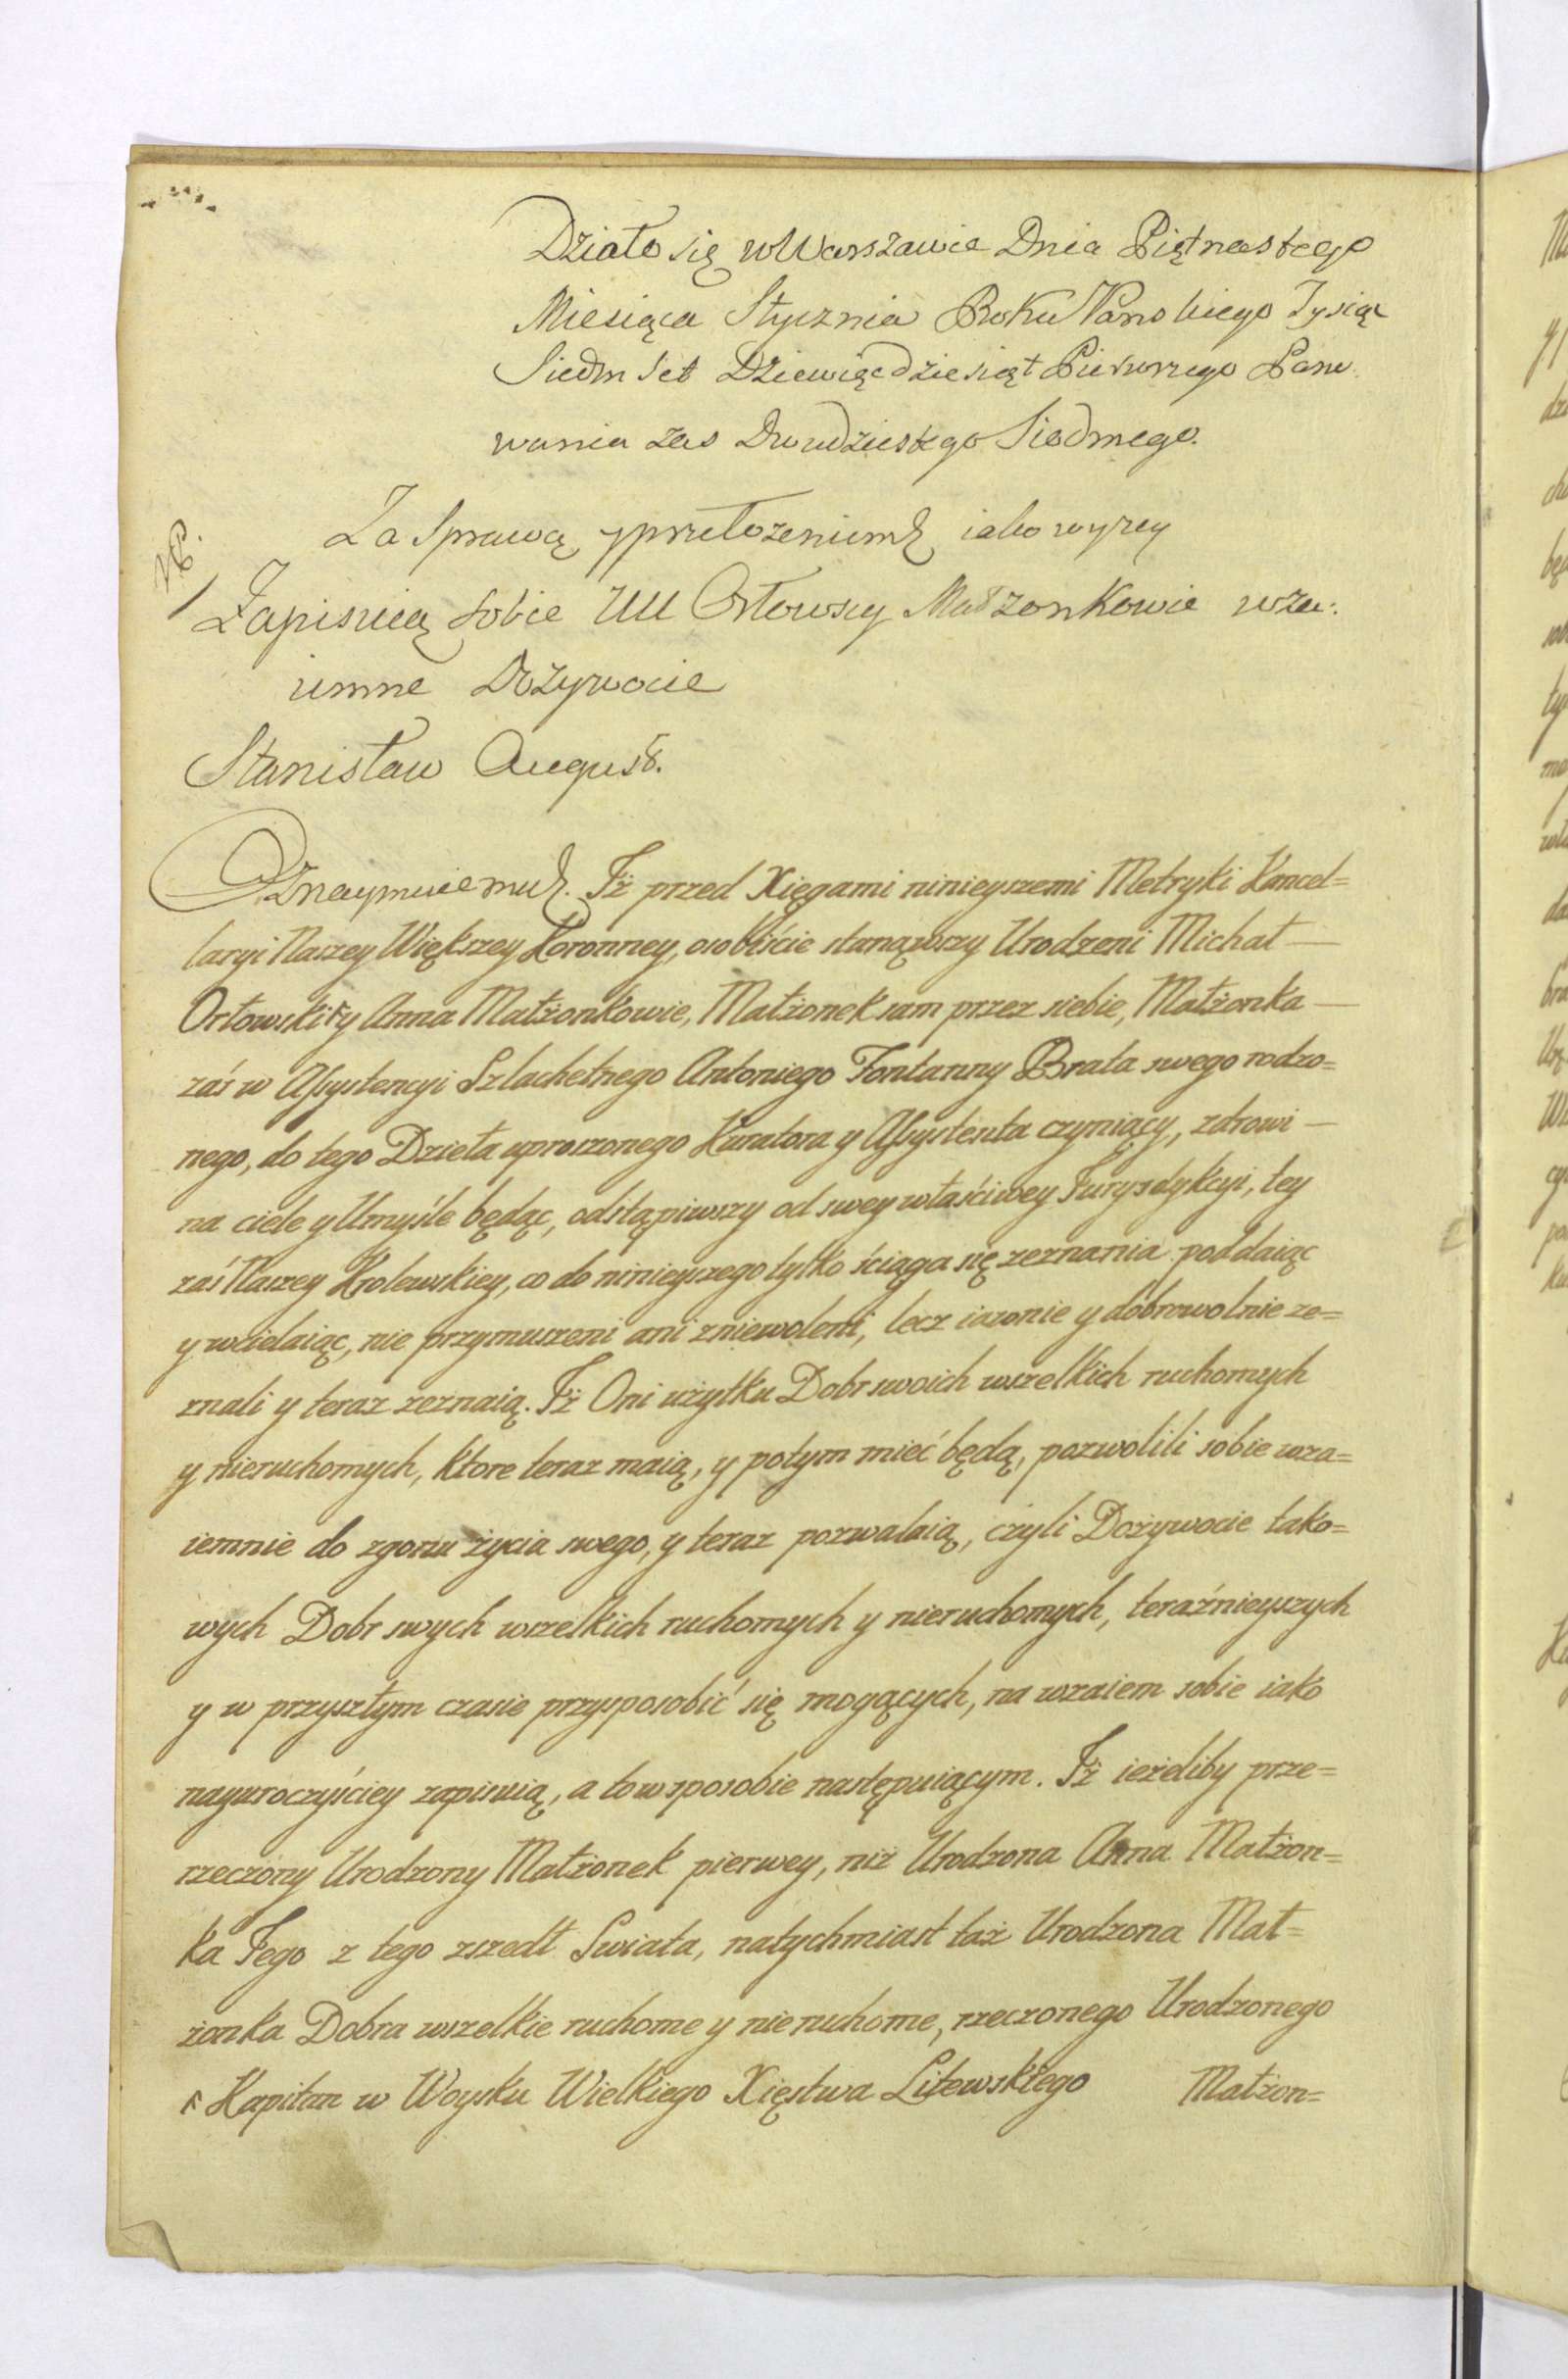 Działo się w Warszawie Dnia Piętnastego
Miesiąca Stycznia Roku Panskiego Tysiąc
Siedm Set Dziewięćdziesiąt Pierwszego Pano
wania zas Dwudziestego Siodmego.
Za Sprawą y przełozeniem jako wyzey
Zapisuią sobie UU Orłowscy Małzonkowie wza:
iemne Dozywocie
Stanisław August.
Oznaymuiemy. Iż przed Xięgami ninieyszemi Metryki Kancel=
laryi Naszey Większey Koronney, osobiście stanąwszy Urodzeni Michał
Orłowski ┌ y Anna Małżonkowie, Małżonek sam przez siebie, Małżonka
zaś w Assystencyi Szlachetnego Antoniego Fontanny Brata swego rodzo=
nego, do tego Dzieła uproszonego Kuratora y Assystenta czyniący, zdrowi
na ciele y Umyśle będąc, odstąpiwszy od swey właściwey Jurysdykcyi, tey
zaś Naszey Krolewskiey, co do ninieyszego tylko ściąga się zeznania poddaiąc
y wcielaiąc, nie przymuszeni ani zniewoleni, lecz iasnie y dobrowolnie ze=
znali y teraz zeznaią. Iż Oni użytku Dobr swoich wszelkich ruchomych
y nieruchomych, ktore teraz maią, y potym mieć będą, pozwolili sobie wza=
iemnie do zgonu życia swego, y teraz pozwalaią, czyli Dożywocie tako=
wych Dobr swych wszelkich ruchomych y nieruchomych, teraźnieyszych
y w przyszłym czasie przysposobić się mogących, na wzaiem sobie iako
nayuroczyściey zapisuią, a to w sposobie następuiącym. Iż ieżeliby prze=
rzeczony Urodzony Małżonek pierwey, niż Urodzona Anna Małżon=
ka Jego z tego zszedł Swiata, natychmiast taż Urodzona Mał=
żonka Dobra wszelkie ruchome y nieruchome, rzeczonego Urodzonego
┌ Kapitan w Woysku Wielkiego Xięstwa Litewskiego Małżon=